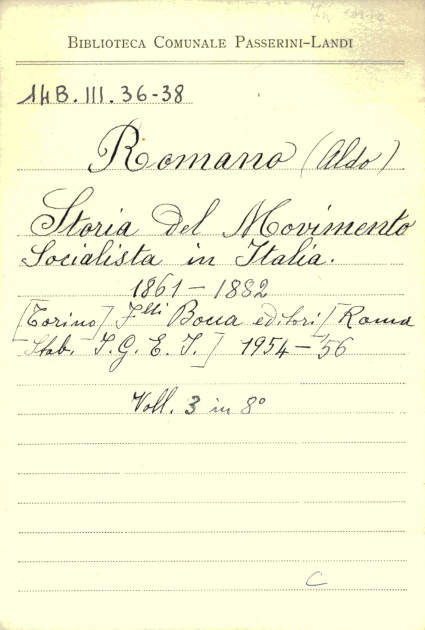 BIBLIOTECA COMUNALE PASSERINI-LANDI
14B. III. 36-38
Romano (Aldo)
Storia del Movimento
Socialista in Italia.
1861 - 1882
[Torino] F.lli Bocca editori [Roma
Stab. I. G. E. I.] 1954 - '56
Voll. 3 in 8°
C